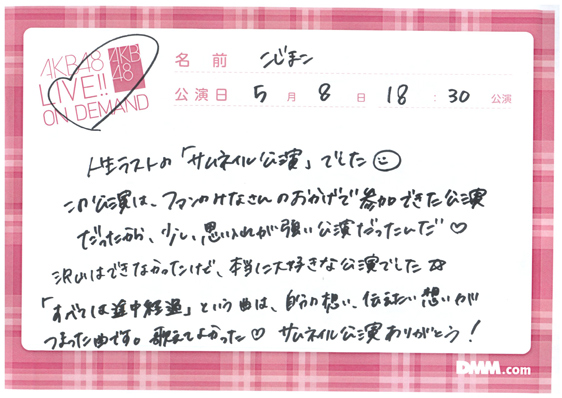 AKB48
LIVE!!
ON DEMAND
AKB
48
名前 こじまこ
公演日 5月8日 18:30公演
人生ラストの「サムネイル公演」でした
この公演は、ファンのみなさんのおかげで参加できた公演
だったから、少し思い入れが強い公演だったんだ♡
沢山はできなかったけど、本当に大好きな公演でした☆
「すべては途中経過」という曲は、自分の想い、伝えたい想いが
つまった曲です。歌えてよかった♡ サムネイル公演ありがとう!
DMM.com